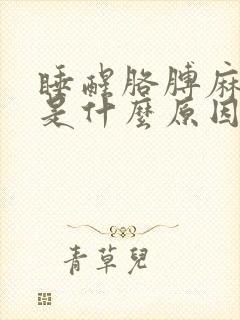 睡醒胳膊麻
是什麼原因
青草兒